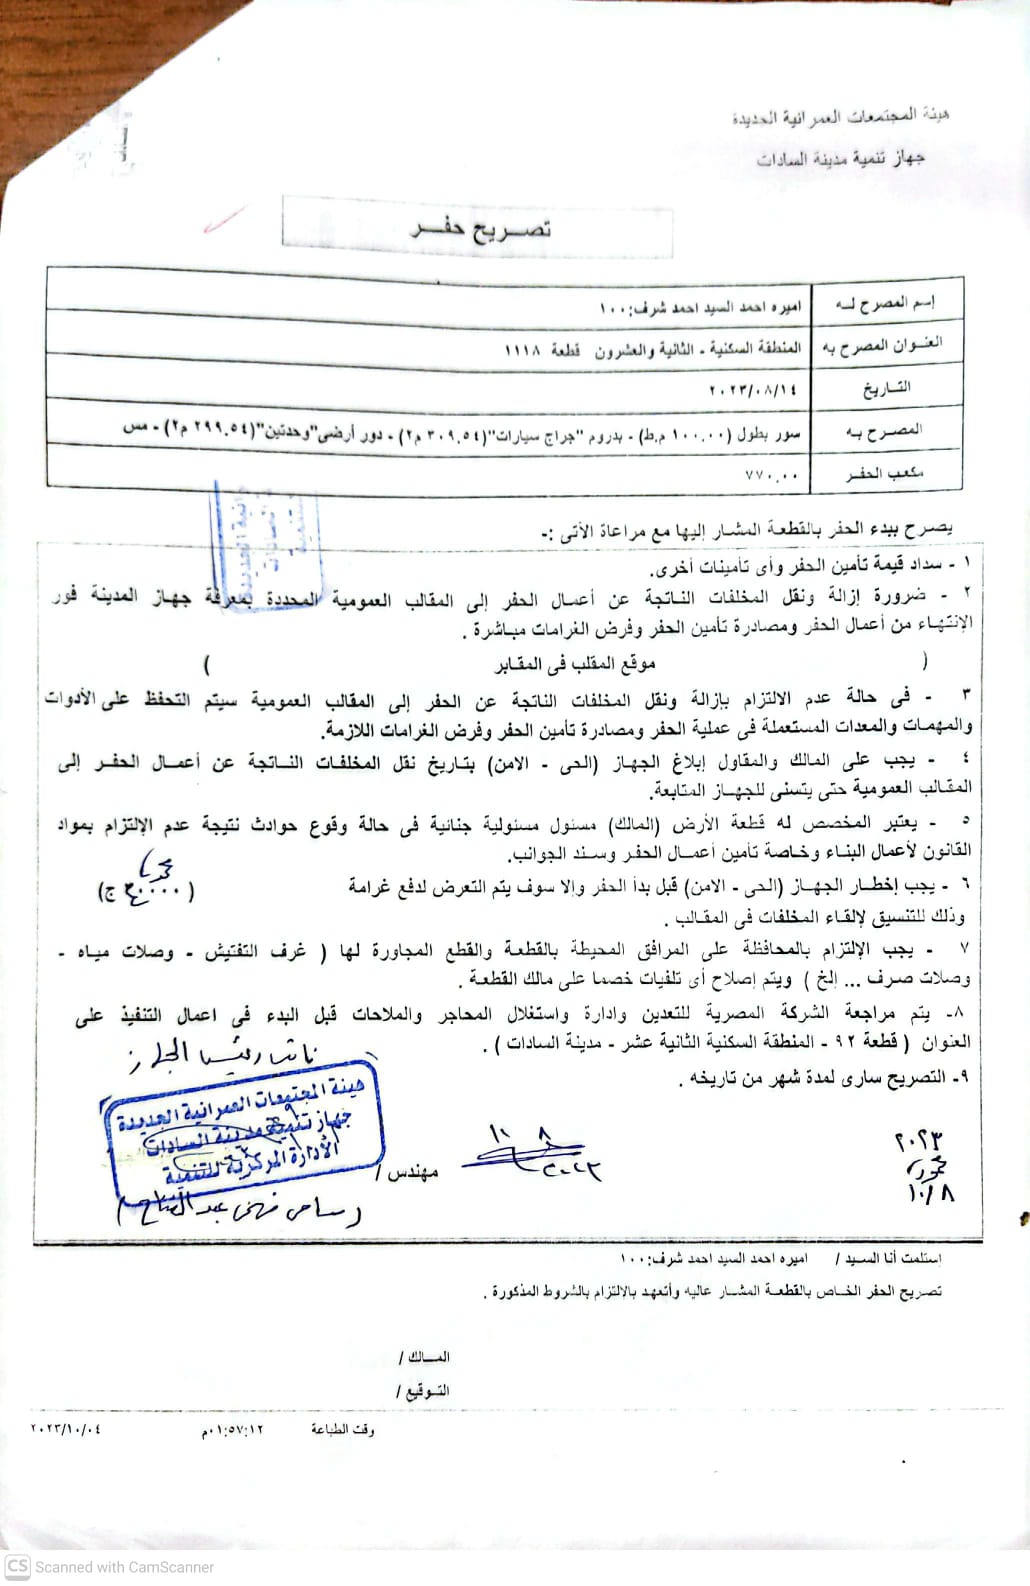 هيئة المجتمعات العمرانية الجديدة
جهاز تنمية مدينة السادات
تصـــريح حفـــر
إسم المصرح لــه
اميره احمد السيد احمد شرف:١٠٠
العنـوان المصرح به
المنطقة السكنية - الثانية والعشرون قطعة ١١١٨
التـاريخ
٢٠٢٣/٠٨/١٤
المصـرح بـه
سور بطول (١٠٠.٠٠ م.ط) - بدروم "جراج سيارات"(٣٠٩.٥٤ م٢) - دور أرضى"وحدتين"(٢٩٩.٥٤ م٢) - مس
مكعب الحفـر
٧٧٠.٠٠
يصـرح ببدء الحفر بالقطعة المشـار إليها مع مراعاة الأتى :-
١ - سداد قيمة تأمين الحفر وأى تأمينات أخرى.
٢ - ضرورة إزالة ونقل المخلفات الناتجة عن أعمال الحفر إلى المقالب العمومية المحددة بمعرفة جهـاز المدينة فور
الإنتهـاء من أعمال الحفر ومصادرة تأمين الحفر وفرض الغرامات مبـاشرة .
( موقع المقلب فى المقابر )
٣ - فى حالة عدم الالتزام بإزالة ونقل المخلفات الناتجة عن الحفر إلى المقالب العمومية سيتم التحفظ على الأدوات
والمهمـات والمعدات المستعملة فى عملية الحفر ومصادرة تأمين الحفر وفرض الغرامات اللازمة.
٤ - يجب على المالك والمقاول إبلاغ الجهاز (الحى - الامن) بتاريخ نقل المخلفات الناتجة عن أعمـال الحفـر إلى
المقـالب العمومية حتى يتسنى للجهـاز المتابعة.
٥ - يعتبر المخصص له قطعة الأرض (المالك) مسئول مسئولية جنائية فى حالة وقوع حوادث نتيجة عدم الإلتزام بمواد
القانون لأعمال البناء وخاصة تأمين أعمـال الحفـر وسـند الجوانب.
٦ - يجب إخطـار الجهـاز (الحى - الامن) قبل بدأ الحفر وإلا سوف يتم التعرض لدفع غرامة
وذلك للتنسيق لإلقـاء المخلفات فى المقـالب .
٧ - يجب الإلتزام بالمحافظة على المرافق المحيطة بالقطعة والقطع المجاورة لها ( غرف التفتيش - وصلات ميـاه -
وصلات صـرف ... إلخ ) ويتم إصلاح أى تلفيات خصما على مالك القطعـة .
٨- يتم مراجعة الشركة المصرية للتعدين وادارة واستغلال المحاجر والملاحات قبل البدء فى اعمال التنفيذ على
العنوان ( قطعة ٩٢ - المنطقة السكنية الثانية عشر - مدينة السادات ) .
٩- التصريح سارى لمدة شهر من تاريخه .
نائب رئيس الجهاز
هيئة المجتمعات العمرانية الجديدة
جهاز تنمية مدينة السادات
الأدارة المركزية للتنمية
مهندس /
٨ ١٠
٢٠٢٣
٢٠٢٣
١٠/٨
إستلمت أنا السـيد / اميره احمد السيد احمد شرف:١٠٠
تصـريح الحفر الخـاص بالقطعـة المشـار عاليه وأتعهد بالإلتزام بالشروط المذكورة .
المـــالك /
التـوقيع /
وقت الطباعة ٠١:٥٧:١٢م ٢٠٢٣/١٠/٠٤
CS Scanned with CamScanner